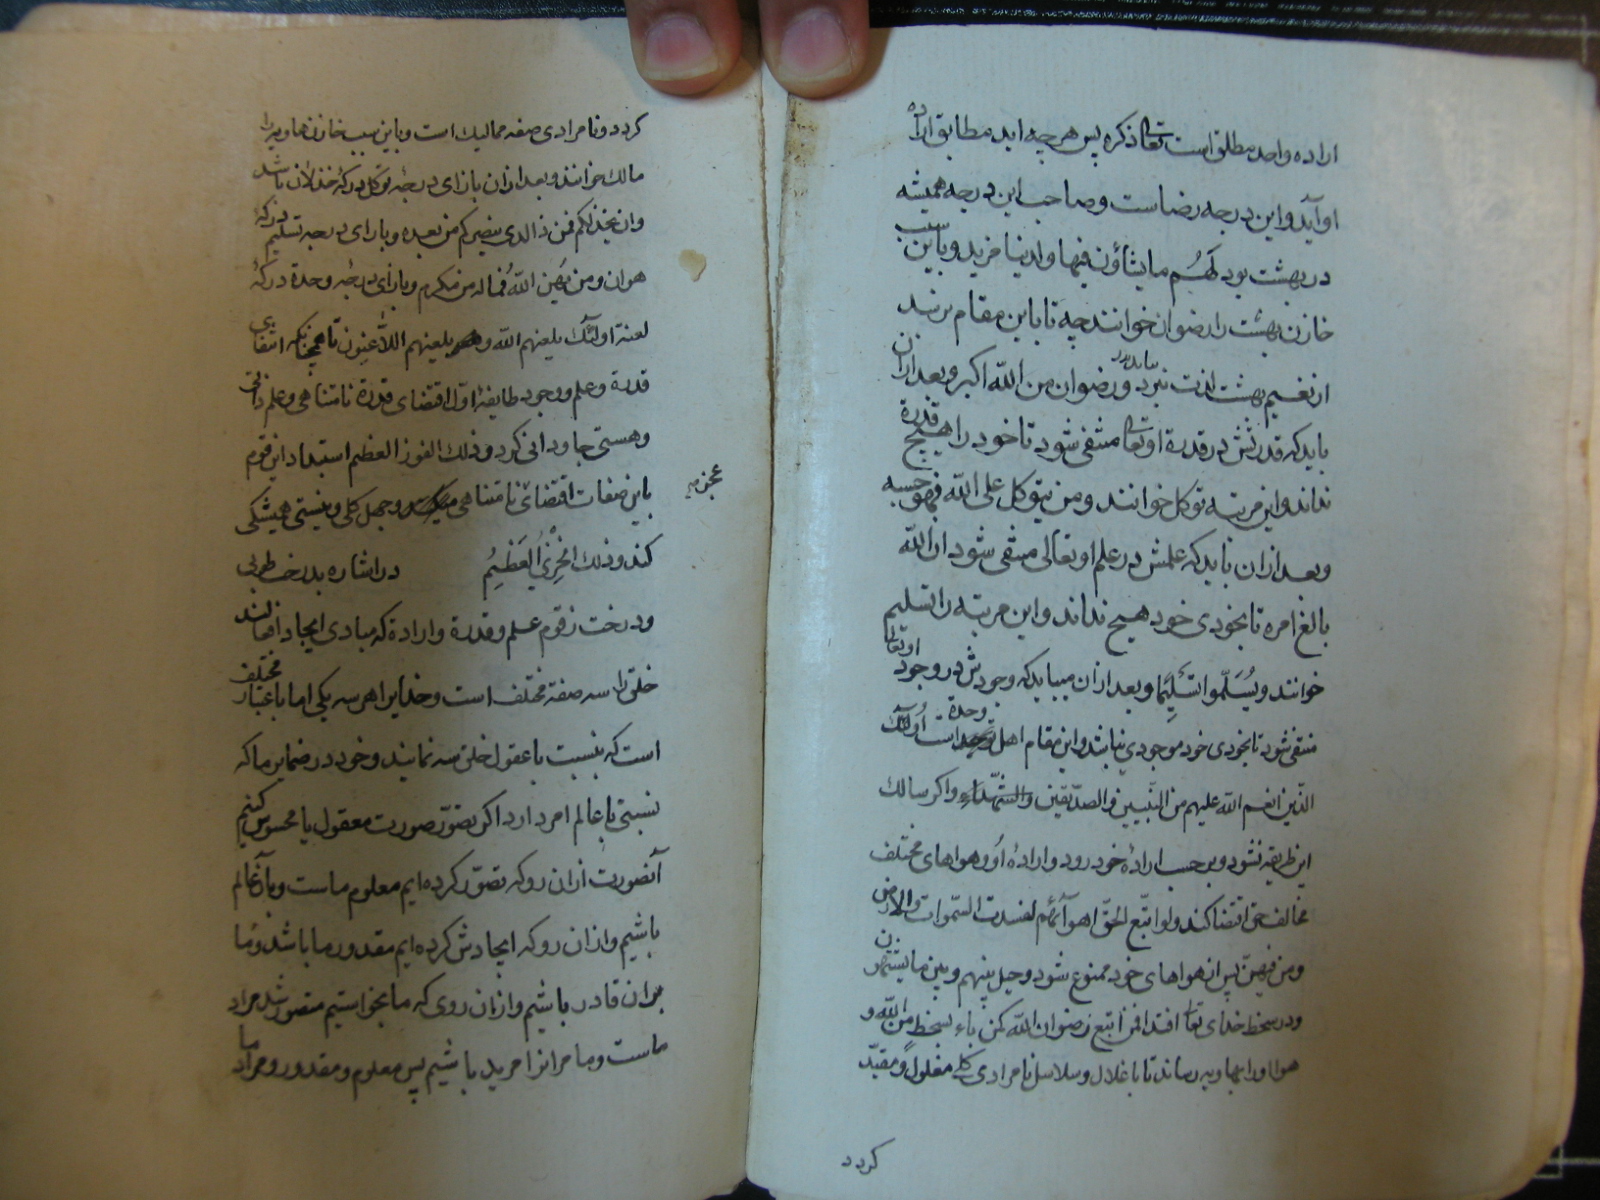 اراده واحد مطلق است تعالی ذکره پس هر چه اید مطابق اراده
او آید و این درجه رضاست و صاحب این درجه همیشه
در بهشت بود لَهُم ما یشاؤن فیها و لدینا مزید و باین سبب
خازن بهشت را رضوان خوانند چه تا باین مقام نرسد
از نعیم بهشت لذت نبرد و رضوان من الله اکبر و بعد ازان
باید که قدرتش در قدرة او تعالی منتفی شود تا خود را هیچ قدرة
نداند و این مرتبه توکل خوانند و من یتوکل علی الله فهو حسبه
و بعد ازان باید که علمش در علم او تعالی منتفی شود ان الله
بالغ امره تا بخودی خود هیچ نداند و این مرتبه را تسلیم
خوانند و یُسَلّموا تسلیما و بعد ازان میباید که وجودش در وجود او تعالی
منتفی شود تا بخودی خود موجودی نباشد و این مقام اهل وحدة است اولئک
الذین انعم الله علیهم من النبیین و الصدیقین و الشهداء و اکر سالک
این طریقه نشود و بر حسب ارادهٔ خود رود و ارادهٔ او هواهای مختلف
مخالف حق اقتضا کند و لو اتبع الحق اهوآئهم لفسدت السموات و الارض
و من فیهن پس از هواهای خود ممنوع شود و حیل بینهم و بین ما یشتهون
و در سخط خدای تعالی افتد افمن اتبع رضوان الله کمن باء بسخط من الله و
هوا او را بهاویه رساند تا با غلال و سلاسل نامرادی کلی مغلول و مقید
کردد
کردد و نامرادی صفه ممالیک است و باین سبب خازن هاویه را
مالک خوانند و بعد ازان بازای درجه توکل درکه خذلان باشد
و ان یخذلکم فمن ذا الذی ینصرکم من بعده و بازای درجه تسلیم درکه
هوان و من یهن الله فما له من مکرم و بازای درجه وحدة درکه
لعنة اولئک یلعنهم الله و یلعنهم اللاعنون تا همچنانکه انتفای
قدرة و علم و وجود طایفهٔ اول اقتضای قدرة نامتناهی و علم ذاتی
و هستی جاودانی کرد و ذلک الفوز العظیم استبداد این قوم
باین صفات اقتضای نامتناهی و جهل کلی و نیستی همیشکی
عجز
کند و ذلک الخِزیُ العَظیمُ در اشاره بدرخت طوبی
و درخت زقوم علم و قدرة و ارادة که مبادی ایجاد افعالند
خلق را سه صفة مختلف است و خدایرا هر سه یکی اما باعتبار مختلف
است که بنسبت با عقول خلق سه نمایند و خود در ضمایر ما که
نسبتی با عالم امر دارد اکر تصور صورت معقول یا محسوس کنیم
آنصورت ازان رو که تصور کرده ایم معلوم ماست و بآن عالم
باشیم و ازان رو که ایجادش کرده ایم مقدور ما باشد و ما
بران قادر باشیم و ازان روی که ما بخواستیم متصور شد مراد
ماست و ما مر انرا مرید باشیم پس معلوم و مقدور و مراد ما